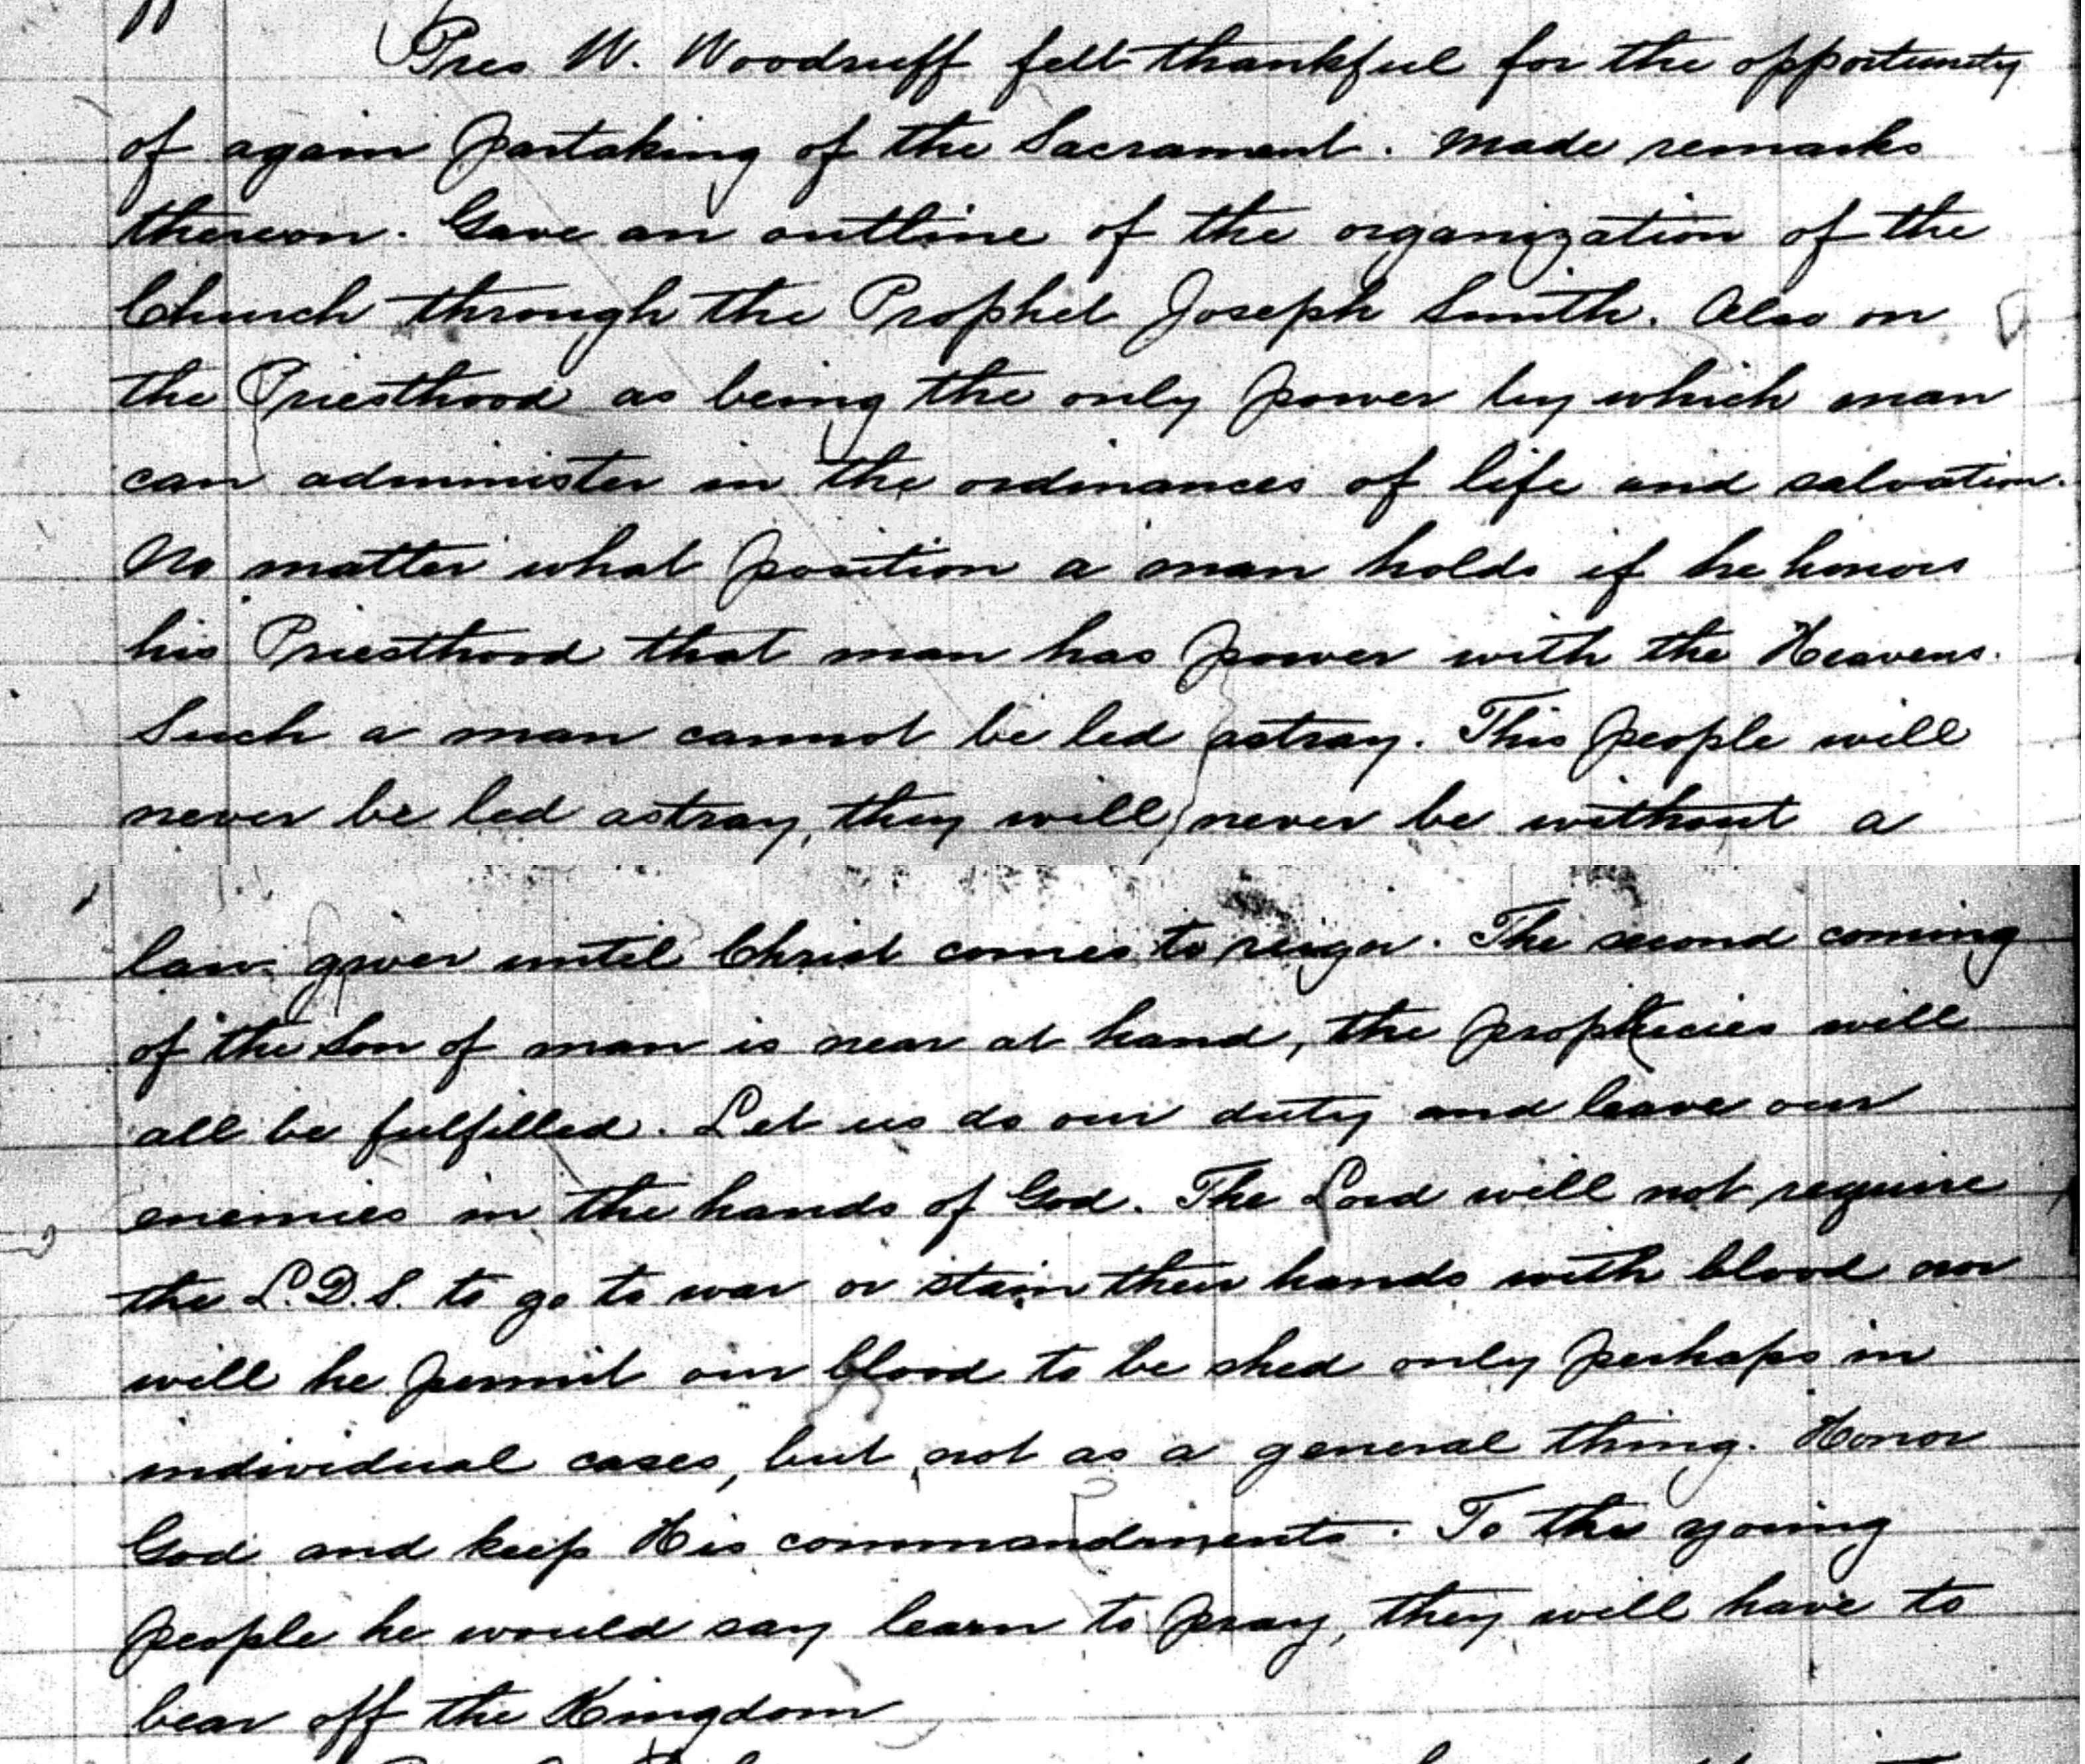 Pres W. Woodruff felt thankful for the opportunity
of again partaking of the Sacrament. Made remarks
thereon. Gave an outline of the organization of the
Church through the Prophet Joseph Smith. Also on
the Priesthood as being the only power by which man
can administer in the ordinances of life and salvation.
No matter what position a man holds if he honors
his Priesthood that man has power with the Heavens.
Such a man cannot be led astray. This people will
never be led astray, they will never be without a
law giver until Christ comes to reign. The second coming
of the Son of man is near at hand, the prophecies will
all be fulfilled. Let us do our duty and leave our
enemies in the hands of God. The Lord will not require
the L.D.S. to go to war or stain their hands with blood nor
will he permit our blood to be shed only perhaps in
individual cases, but not as a general thing. Honor
God and keep His commandments. To the young
people he would say learn to pray, they will have to
bear off the Kingdom